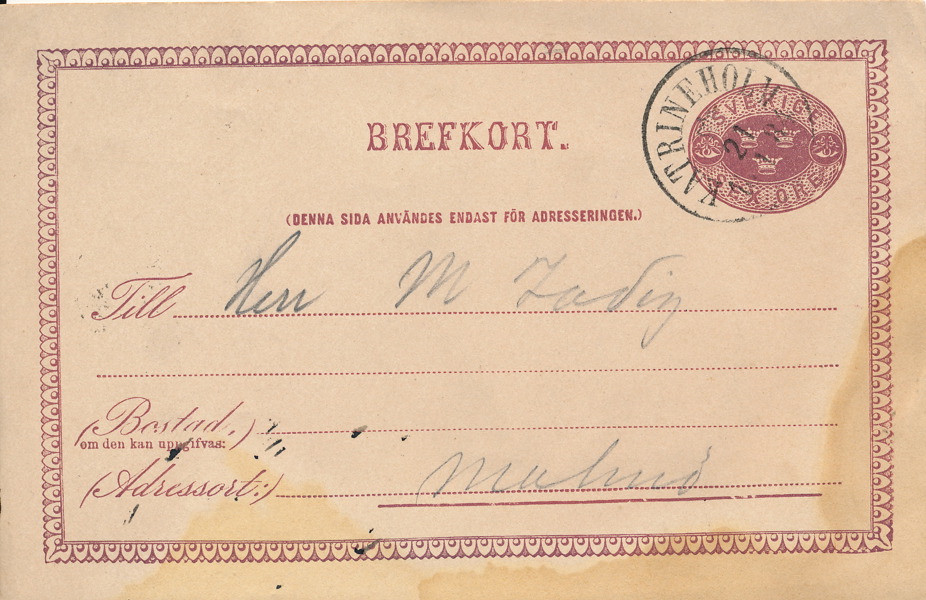 BREFKORT.
KATRINEHOLM
SVERIGE
ÖRE
(DENNA SIDA ANVÄNDES ENDAST FÖR ADRESSERINGEN.)
Till Herr M Zadig
(Bostad,
om den kan uppgifvas:)
(Adressort:) Malmö